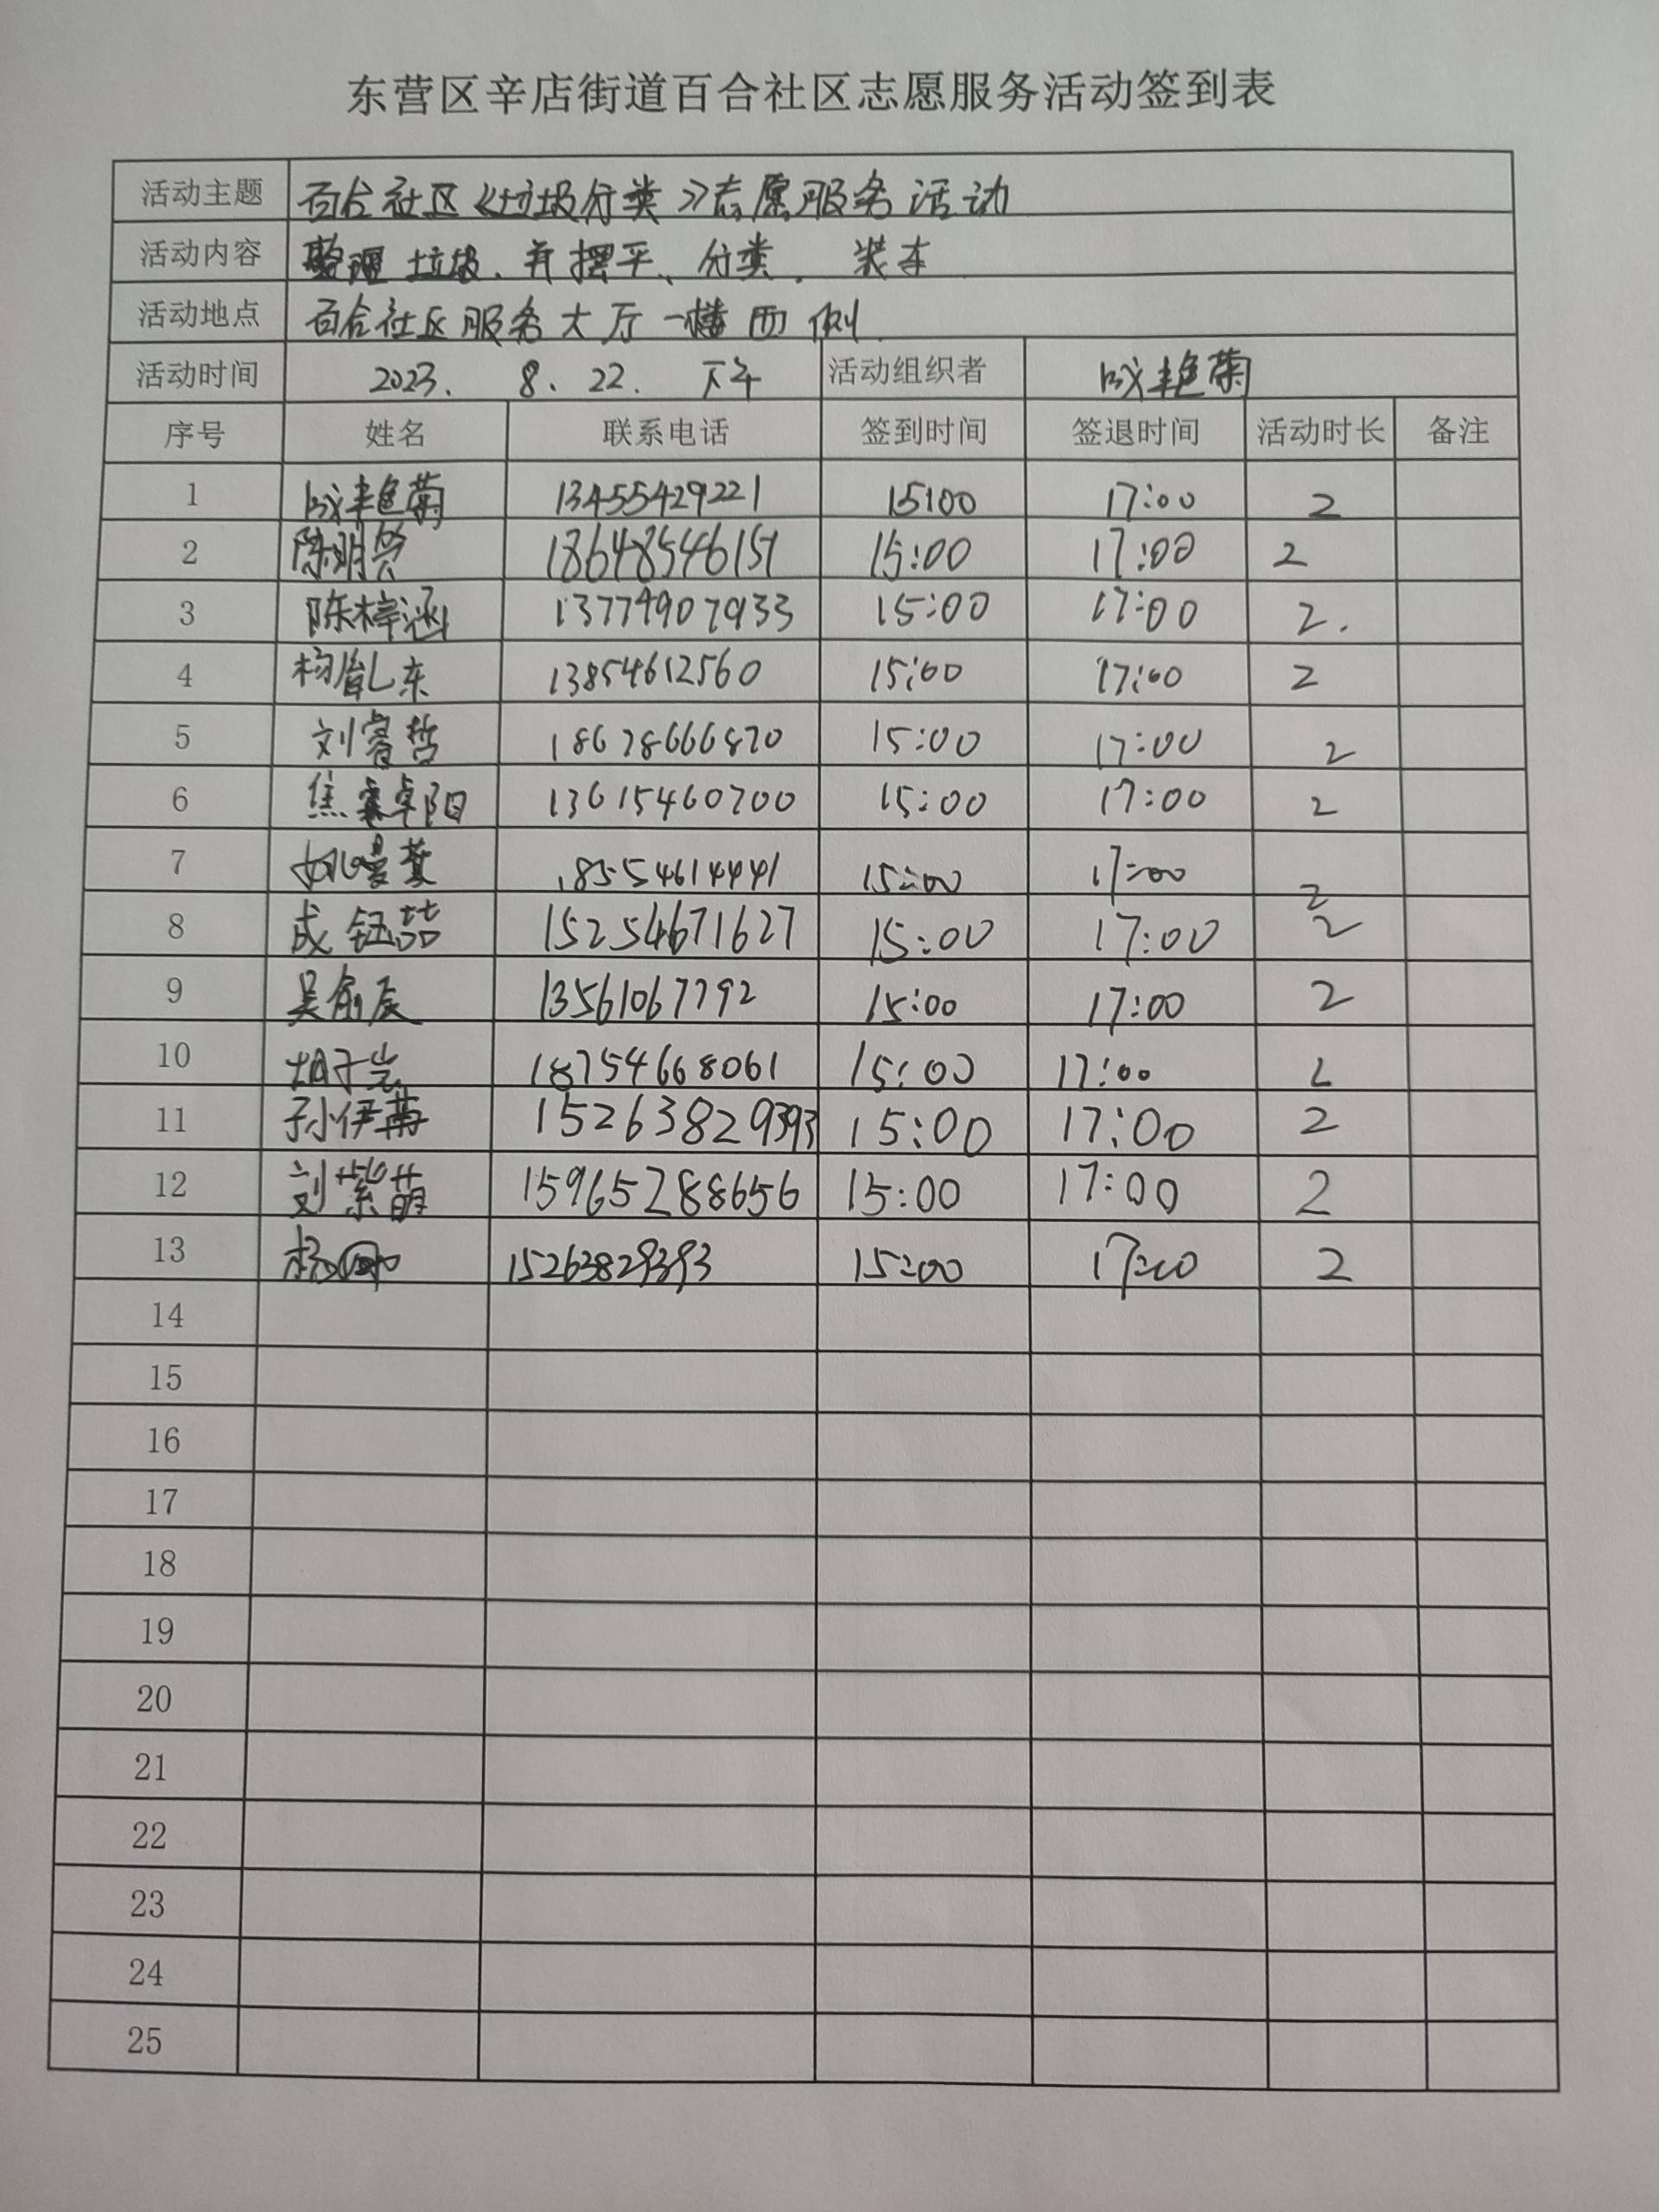 东营区辛店街道百合社区志愿服务活动签到表
活动主题 百合社区《垃圾分类》志愿服务活动
活动内容 整理垃圾、并摆平、分类、装车
活动地点 百合社区服务大厅一楼西侧
活动时间 2023. 8. 22. 下午 活动组织者 成艳菊
序号 姓名 联系电话 签到时间 签退时间 活动时长 备注
1 成艳菊 13455429221 15:00 17:00 2
2 18648546151 15:00 17:00 2
3 陈梓涵 13774907933 15:00 17:00 2.
4 杨胤东 13854612560 15:00 17:00 2
5 刘睿哲 18678666870 15:00 17:00 2
6 焦卓阳 13615460700 15:00 17:00 2
7 18554614441 15:00 17:00 2
8 成钰喆 15254671627 15:00 17:00 2
9 吴俞辰 13561067792 15:00 17:00 2
10 胡子岩 18754668061 15:00 17:00 2
11 孙伊苒 15263829393 15:00 17:00 2
12 刘紫萌 15965288656 15:00 17:00 2
13 15263829393 15:00 17:00 2
14
15
16
17
18
19
20
21
22
23
24
25